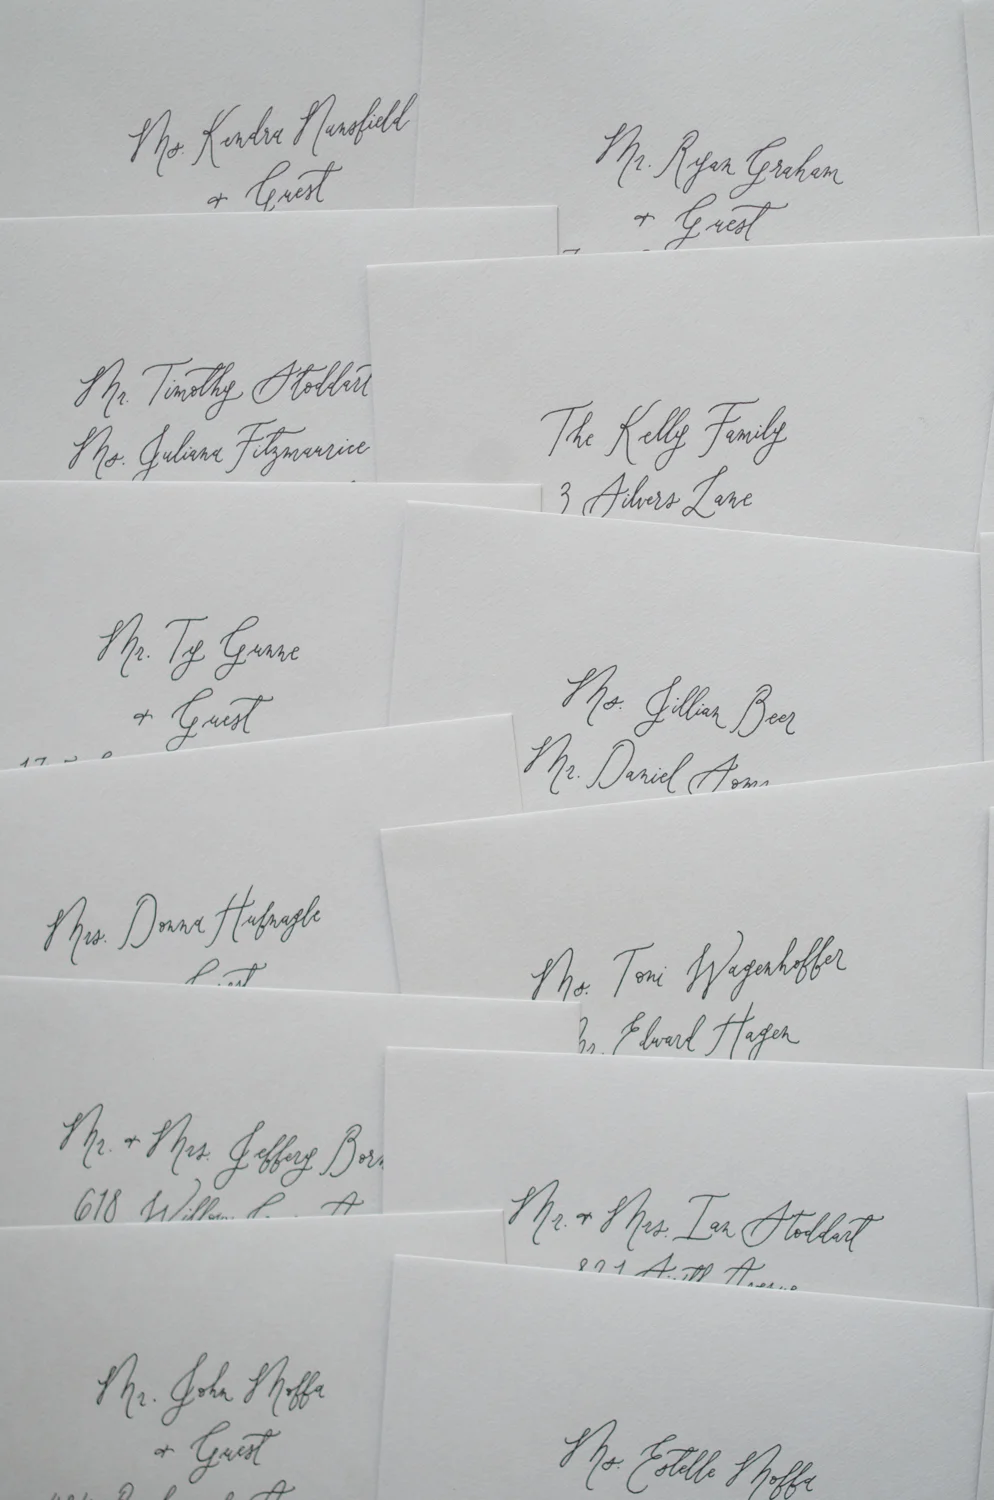 Ms. Kendra Mansfield
+ Guest
Mr. Ryan Graham
+ Guest
Mr. Timothy Stoddart
Ms. Juliana Fitzmaurice
The Kelly Family
3 Silvers Lane
Mr. Ty Gunne
+ Guest
Ms. Jillian Beer
Mr. Daniel
Mrs. Donna Hufnagle
Guest
Ms. Toni Wagenhoffer
Mr. Edward Hagen
Mr. + Mrs. Jeffery
618 Willow
Mr. + Mrs. Ian Stoddart
821
Mr. John Moffa
+ Guest
Ms. Estelle Moffa